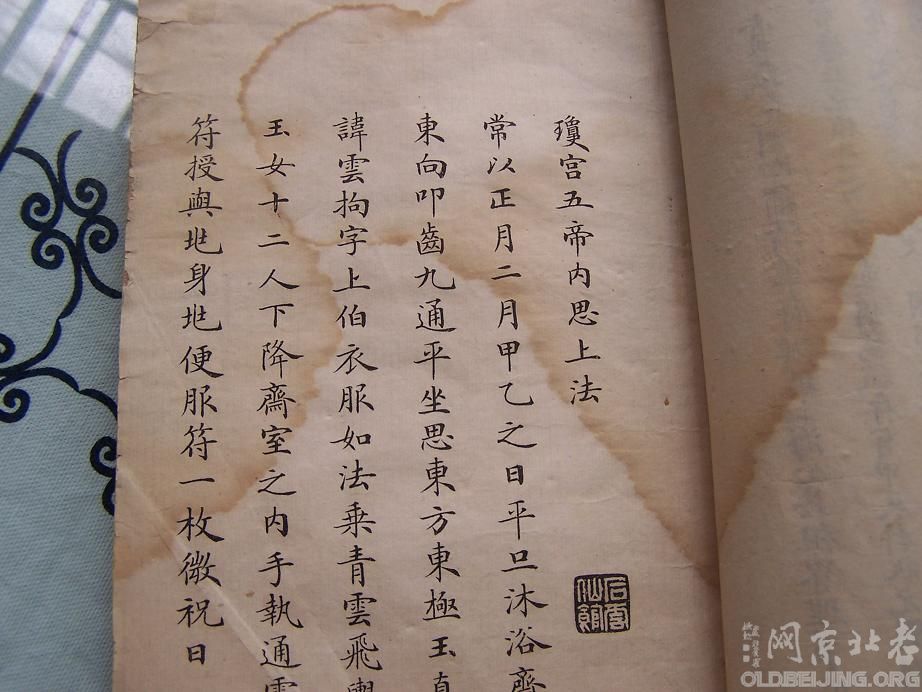 瓊宫五帝内思上法
常以正月二月甲乙之日平旦沐浴齊
東向叩齒九通平坐思東方東極玉真
諱雲拘字上伯衣服如法乗青雲飛輿
玉女十二人下降齋室之内手執通靈
符授與兆身兆便服符一枚微祝曰
仙館
网京北老
OLDBEIJING.ORG